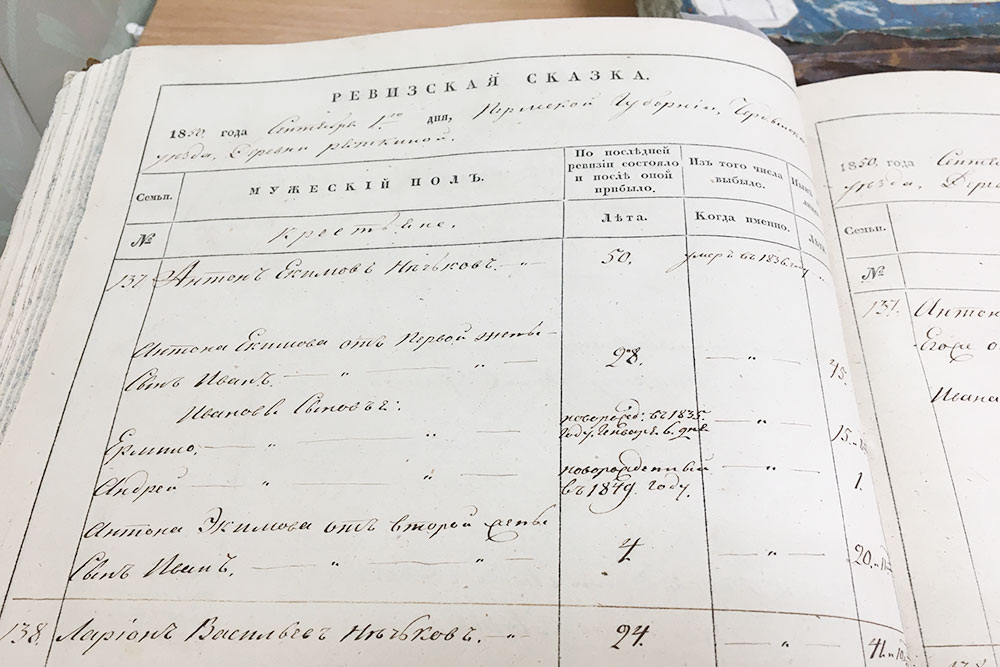 РЕВИЗСКАЯ СКАЗКА.
1850 года Сентября 1го дня, Пермской Губернiи,
уѣзда, Деревни
Семьи.
МУЖЕСКIЙ ПОЛЪ.
По послѣдней ревизiи состояло и послѣ оной прибыло.
Изъ того числа выбыло.
№
Крестьяне.
Лѣта.
Когда именно.
137. Антонъ Екимовъ Нѣчьковъ. — „ 50. умеръ въ 1836
Антона Екимова отъ первой жены
Сынъ Иванъ. — „ — „ — 28. — „ — 45.
Ивановы Сыновья:
Ермило, — „ — „ — новорожд: въ 1835. году, Генваря 6. дня — „ — 15.
Андрей — „ — „ — новорожденный въ 1849. году. — „ — 1.
Антона Экимова отъ второй жены
Сынъ Иванъ. — „ — „ — 4 — „ — 20.
138. Ларiонъ Васильевъ Нѣчьковъ. — „ — 24. — „ —
1850. года
уѣзда,
Семьи.
№
137.
Ивана